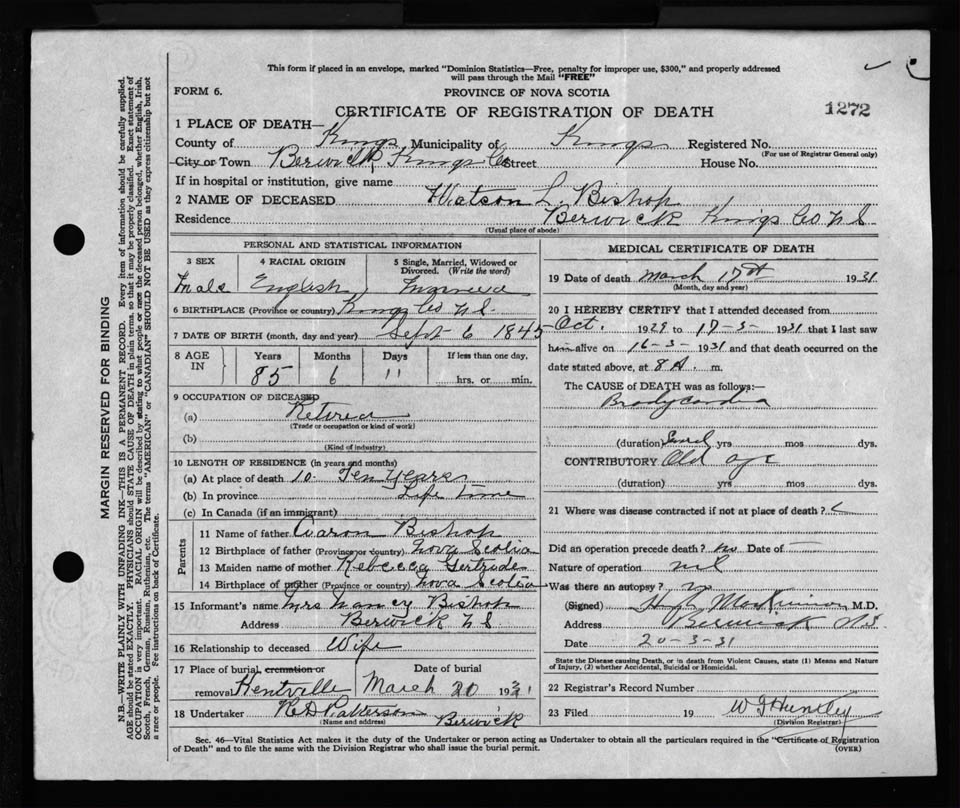 This form if placed in an envelope, marked "Dominion Statistics—Free, penalty for improper use, $300," and properly addressed
will pass through the Mail "FREE"
FORM 6.
PROVINCE OF NOVA SCOTIA
CERTIFICATE OF REGISTRATION OF DEATH
1272
1 PLACE OF DEATH—
County of Kings, Municipality of Kings Registered No.
(For use of Registrar General only)
City or Town Berwick, Kings Co Street House No.
If in hospital or institution, give name
2 NAME OF DECEASED Watson L. Bishop
Residence Berwick Kings Co N S
(Usual place of abode)
PERSONAL AND STATISTICAL INFORMATION
3 SEX
4 RACIAL ORIGIN
5 Single, Married, Widowed or Divorced. (Write the word)
Male English Married
6 BIRTHPLACE (Province or country) Kings Co N S.
7 DATE OF BIRTH (month, day and year) Sept 6 1845
8 AGE IN
Years Months Days If less than one day,
85 6 11 hrs. or min.
9 OCCUPATION OF DECEASED
(a) Retired
(Trade or occupation or kind of work)
(b)
(Kind of industry)
10 LENGTH OF RESIDENCE (in years and months)
(a) At place of death 10. Ten years
(b) In province Life time
(c) In Canada (if an immigrant)
Parents
11 Name of father Aaron Bishop
12 Birthplace of father (Province or country) Nova Scotia
13 Maiden name of mother Rebecca Gertrude
14 Birthplace of mother (Province or country) Nova Scotia
15 Informant's name Mrs Nancy Bishop
Address Berwick N S
16 Relationship to deceased Wife
17 Place of burial, cremation or removal Kentville
Date of burial March 20 1931
18 Undertaker R D Patterson Berwick
(Name and address)
MEDICAL CERTIFICATE OF DEATH
19 Date of death March 17th 1931
(Month, day and year)
20 I HEREBY CERTIFY that I attended deceased from
Oct. 1929 to 17-3- 1931 that I last saw
him alive on 16-3- 1931 and that death occurred on the
date stated above, at 8 A. m.
The CAUSE of DEATH was as follows:—
Bradycardia
(duration) yrs mos dys.
CONTRIBUTORY Old age
(duration) yrs mos dys.
21 Where was disease contracted if not at place of death?
Did an operation precede death? no Date of —
Nature of operation nil
Was there an autopsy? no
(Signed) Hugh MacKinnon M.D.
Address Berwick N.S.
Date 20-3-31
State the Disease causing Death, or in death from Violent Causes, state (1) Means and Nature of Injury, (2) whether Accidental, Suicidal or Homicidal.
22 Registrar's Record Number
23 Filed 19 W J Huntley
(Division Registrar)
Sec. 46—Vital Statistics Act makes it the duty of the Undertaker or person acting as Undertaker to obtain all the particulars required in the "Certificate of Registration
of Death" and to file the same with the Division Registrar who shall issue the burial permit.
(OVER)
MARGIN RESERVED FOR BINDING
N.B.—WRITE PLAINLY WITH UNFADING INK—THIS IS A PERMANENT RECORD. Every item of information should be carefully supplied.
AGE should be stated EXACTLY. PHYSICIANS should STATE CAUSE OF DEATH in plain terms, so that it may be properly classified. Exact statement of
OCCUPATION is very important. RACIAL ORIGIN will be described by stating to what people or race the deceased person belonged, whether English, Irish,
Scotch, French, German, Russian, Ruthenian, etc. The terms "AMERICAN" or "CANADIAN" SHOULD NOT BE USED as they express citizenship but not
a race or people. See instructions on back of Certificate.